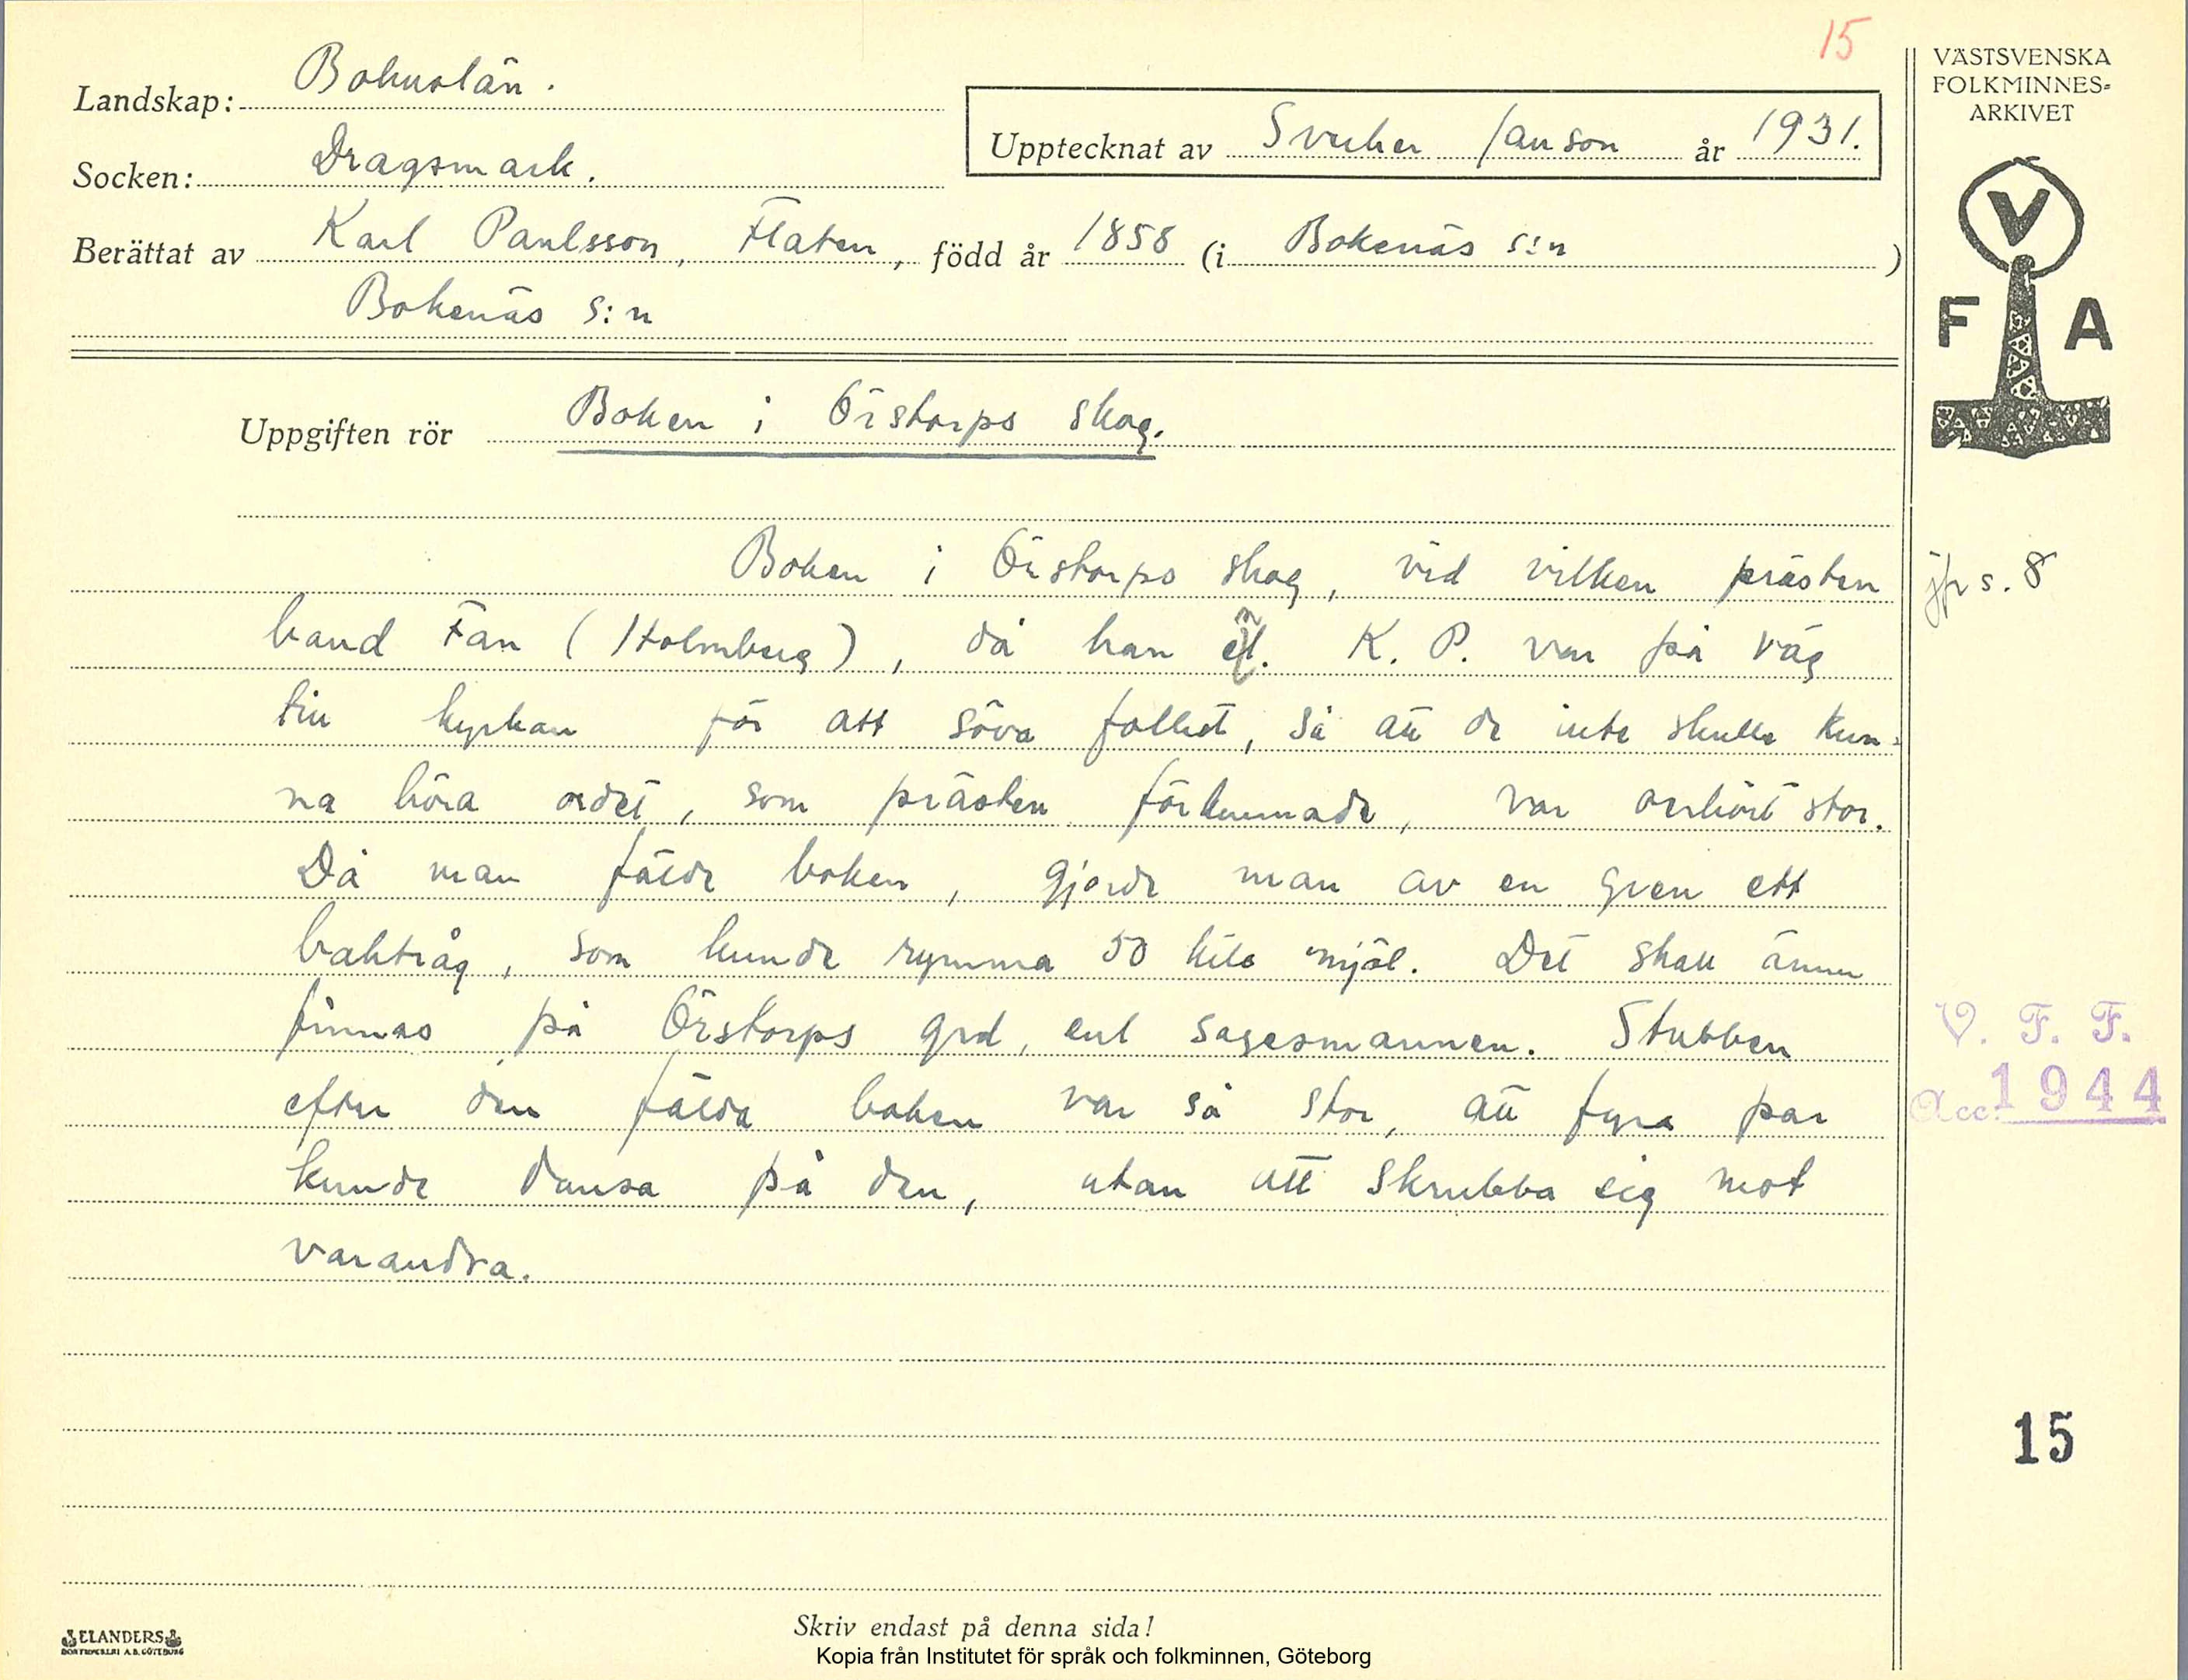 15
VÄSTSVENSKA
FOLKMINNES-
ARKIVET
Landskap: Bohuslän.
Upptecknat av Sverker Janson år 1931.
Socken: Dragsmark.
Berättat av Karl Paulsson, Flaten, född år 1858 (i Bokenäs s:n )
Bokenäs s:n
V
F A
Uppgiften rör Boken i Örstorps skog.
Boken i Örstorps skog, vid vilken prästen
jfr s. 8
band Fan (Holmberg), då han enl. K. P. var på väg
till kyrkan för att söva folket, så att de inte skulle kun-
na höra ordet, som prästen förkunnade, var oerhört stor.
Då man fälde boken, gjorde man av en gren ett
baktråg, som kunde rymma 50 kilo mjöl. Det skall ännu
finnas på Örstorps grd, enl sagesmannen. Stubben
V. F. F.
efter den fälda boken var så stor, att fyra par
Acc. 1944
kunde dansa på den, utan att skrubba sig mot
varandra.
15
Skriv endast på denna sida!
ELANDERS
BOKTRYCKERI A.B. GÖTEBORG
Kopia från Institutet för språk och folkminnen, Göteborg